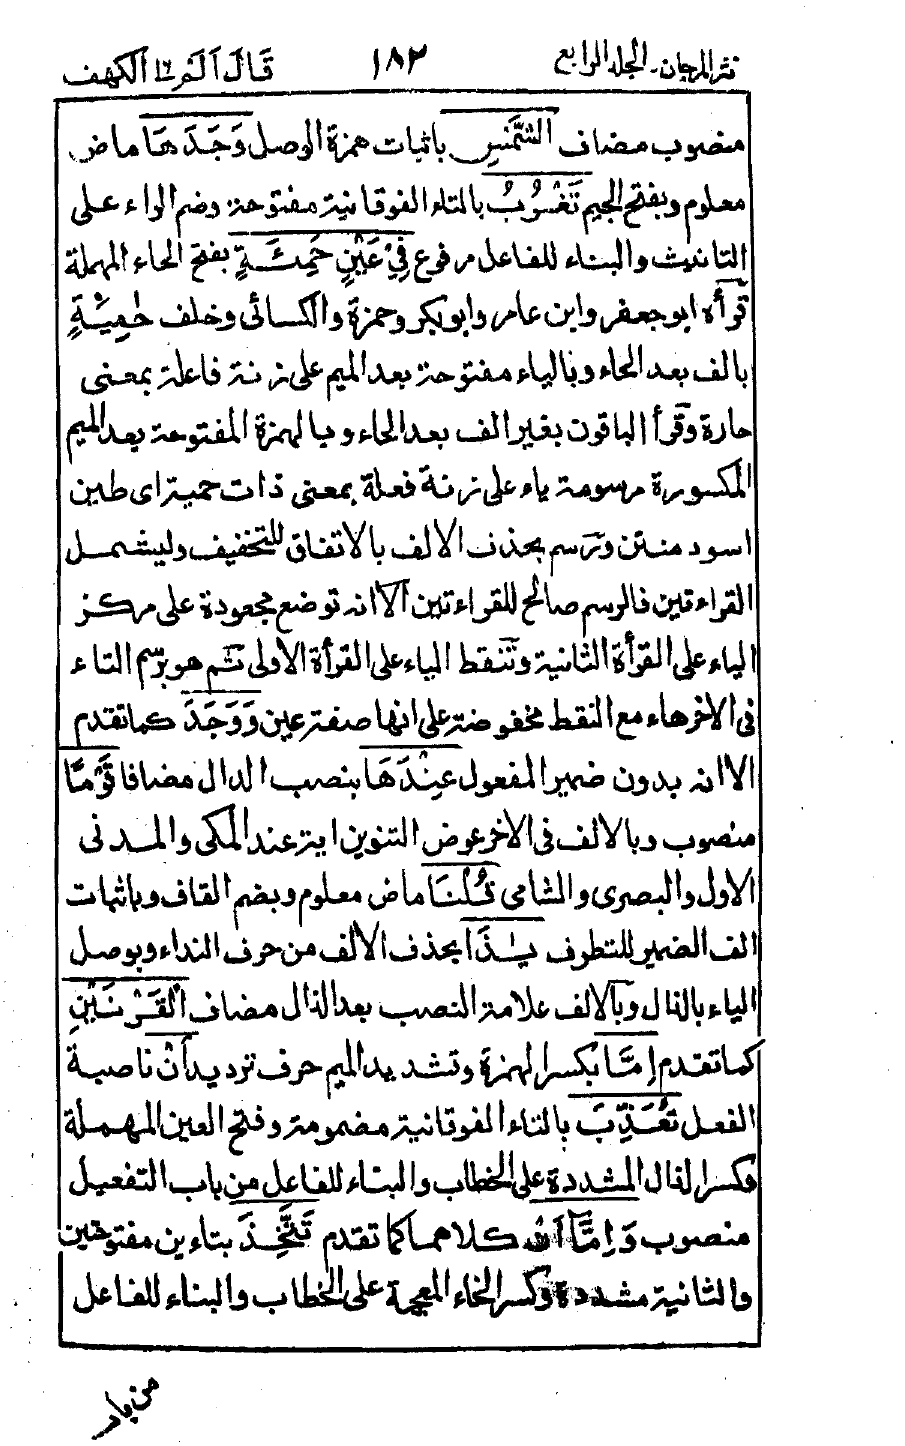 نثر المرجان ـ الجلد الرابع ١٨٢ قَالَ اَلَمْ ١٦ الكهف
منصوب مضاف الشَّمْسِ باثبات همزة الوصل وَجَدَهَا ماض
معلوم وبفتح الجيم تَغْرُبُ بالتاء الفوقانية مفتوحة وضم الراء على
التانيث والبناء للفاعل مرفوع فِيْ عَيْنٍ حَمِئَةٍ بفتح الحاء المهملة
قرأه ابوجعفر وابن عامر وابوبكر وحمزة والكسائى وخلف حٰمِيَةٍ
بالف بعد الحاء وبالياء مفتوحة بعد الميم على زنة فاعلة بمعنى
حارة وقرأ الباقون بغير الف بعد الحاء وبالهمزة المفتوحة بعد الميم
المكسورة مرسومة ياء على زنة فعلة بمعنى ذات حمية اى طين
اسود منتن ورسم بحذف الالف بالاتفاق للتخفيف وليشمل
القراءتين فالرسم صالح للقراءتين الا انه توضع مجعودة على مركز
الياء على القرأة الثانية وتنقط الياء على القرأة الاولى ثم هو برسم التاء
فى الاخر هاء مع النقط مخفوضة على انها صفة عين وَوَجَدَ كما تقدم
الا انه بدون ضمير المفعول عِنْدَهَا بنصب الدال مضافا قَوْمًا
منصوب وبالالف فى الاخر عوض التنوين اية عند المكى والمدنى
الاول والبصرى والشامى قُلْنَا ماض معلوم وبضم القاف وباثبات
الف الضمير للتطرف يٰذَا بحذف الالف من حرف النداء وبوصل
الياء بالذال وبالالف علامة النصب بعد الذال مضاف الْقَرْنَيْنِ
كما تقدم اِمَّا بكسر الهمزة وتشديد الميم حرف ترديد اَنْ ناصبة
الفعل تُعَذِّبَ بالتاء الفوقانية مضمومة وفتح العين المهملة
وكسر الذال المشددة على الخطاب والبناء للفاعل من باب التفعيل
منصوب وَاِمَّا اَنْ كلاهما كما تقدم تَتَّخِذَ بتاءين مفتوحتين
والثانية مشددة وكسر الخاء المعجمة على الخطاب والبناء للفاعل
من باب